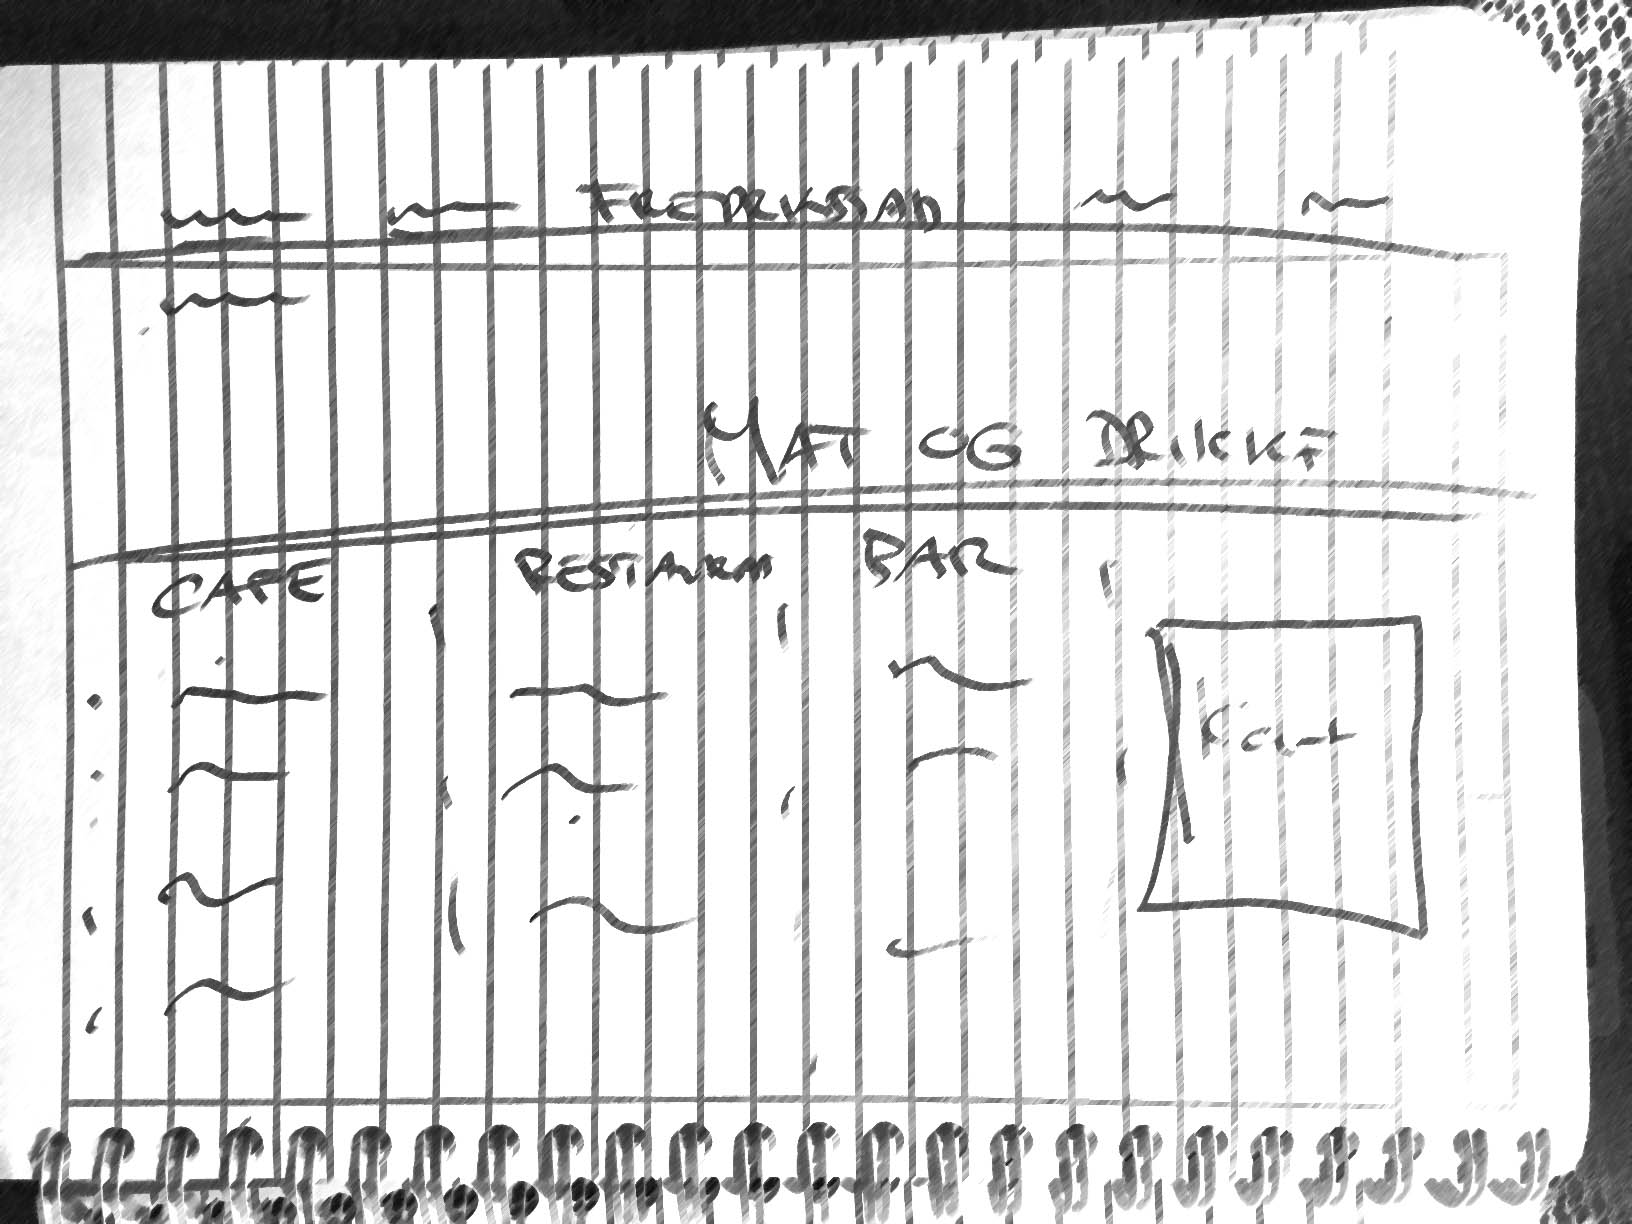 FREDRIKSSTAD
MAT OG DRIKKE
CAFE RESTAURANT BAR
Kart